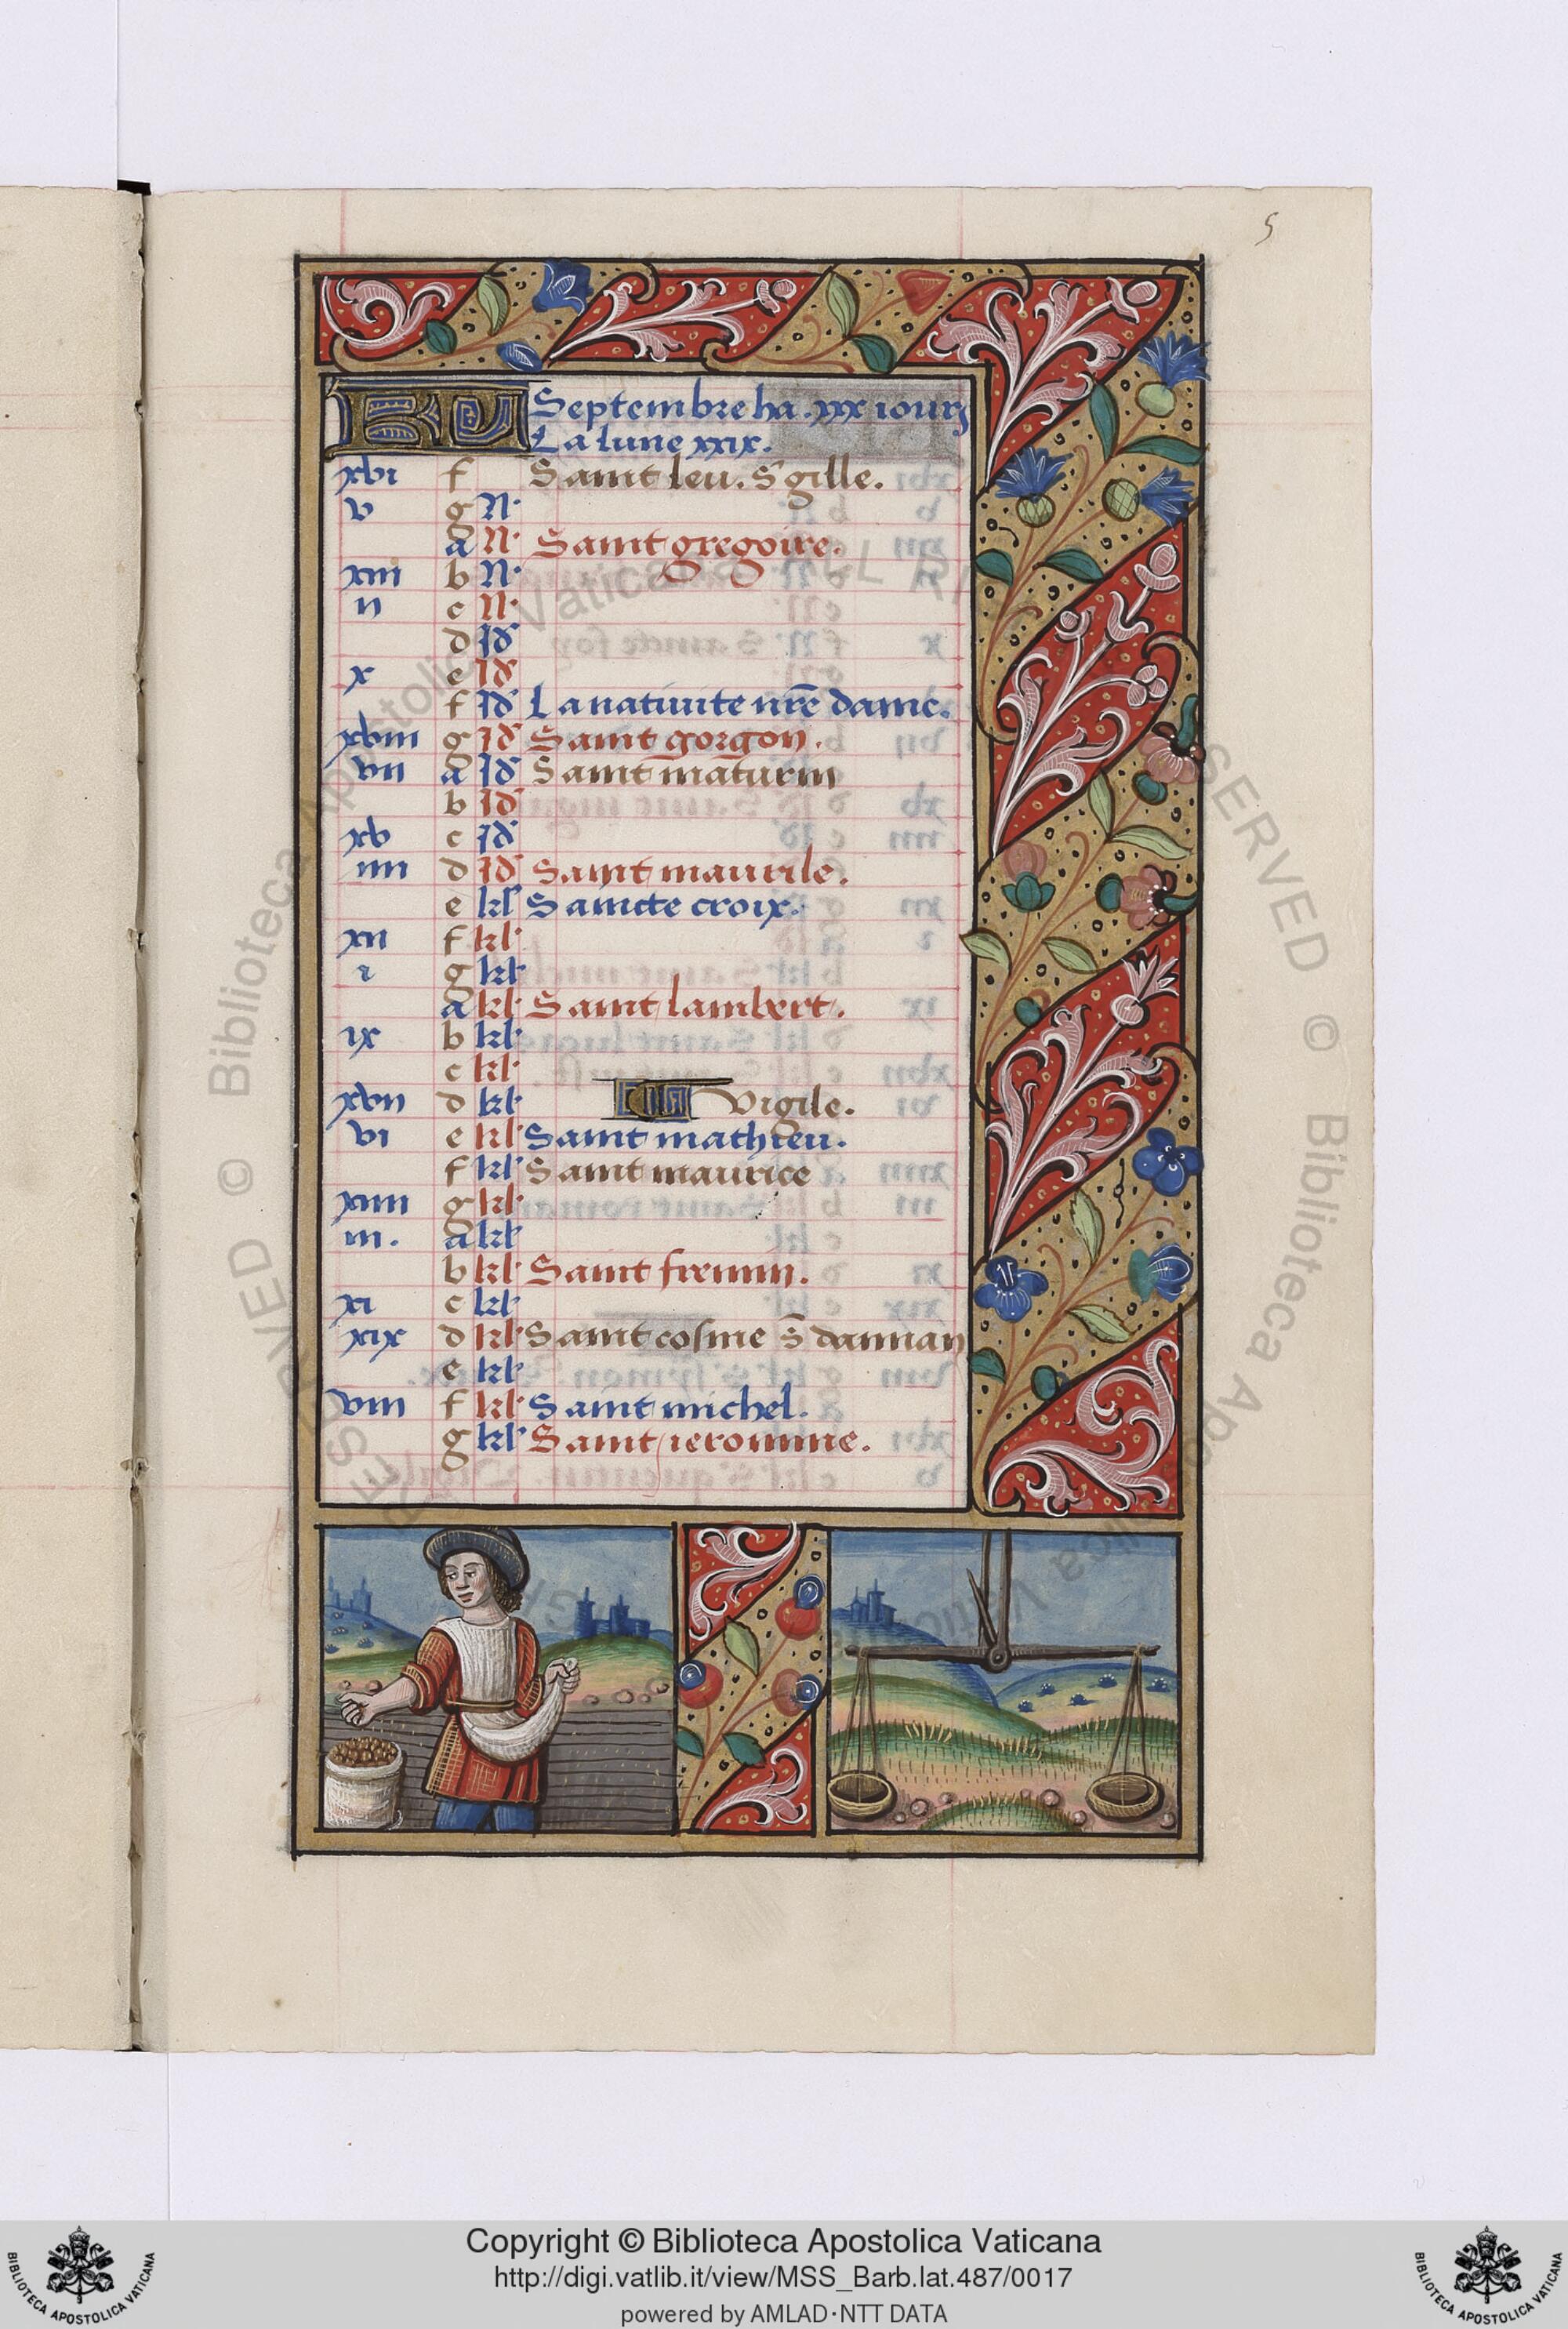 5
KL Septembre ha . xxx iours
La lune xxix .
xvi f Saint leu . s gille .
v g N
a N Saint gregoire .
xiii b N
ii c N
d id
x e id
f id La nativite nr̄e dame .
xviii g id Saint gorgon .
vii a id Saint maturin
b id
xv c id
iiii d id Saint maurile .
e kl Saincte croix .
xii f kl
i g kl
a kl Saint lambert .
ix b kl
c kl
xvii d kl Vigile .
vi e kl Saint mathieu .
f kl Saint maurice
xiiii g kl
iii . a kl
b kl Saint fremin .
xi c kl
xix d kl Saint cosme s̄ damian
e kl
viii f kl Saint michel .
g kl Saint ieromme .
Copyright © Biblioteca Apostolica Vaticana
http://digi.vatlib.it/view/MSS_Barb.lat.487/0017
powered by AMLAD·NTT DATA
BIBLIOTECA APOSTOLICA VATICANA
BIBLIOTECA APOSTOLICA VATICANA